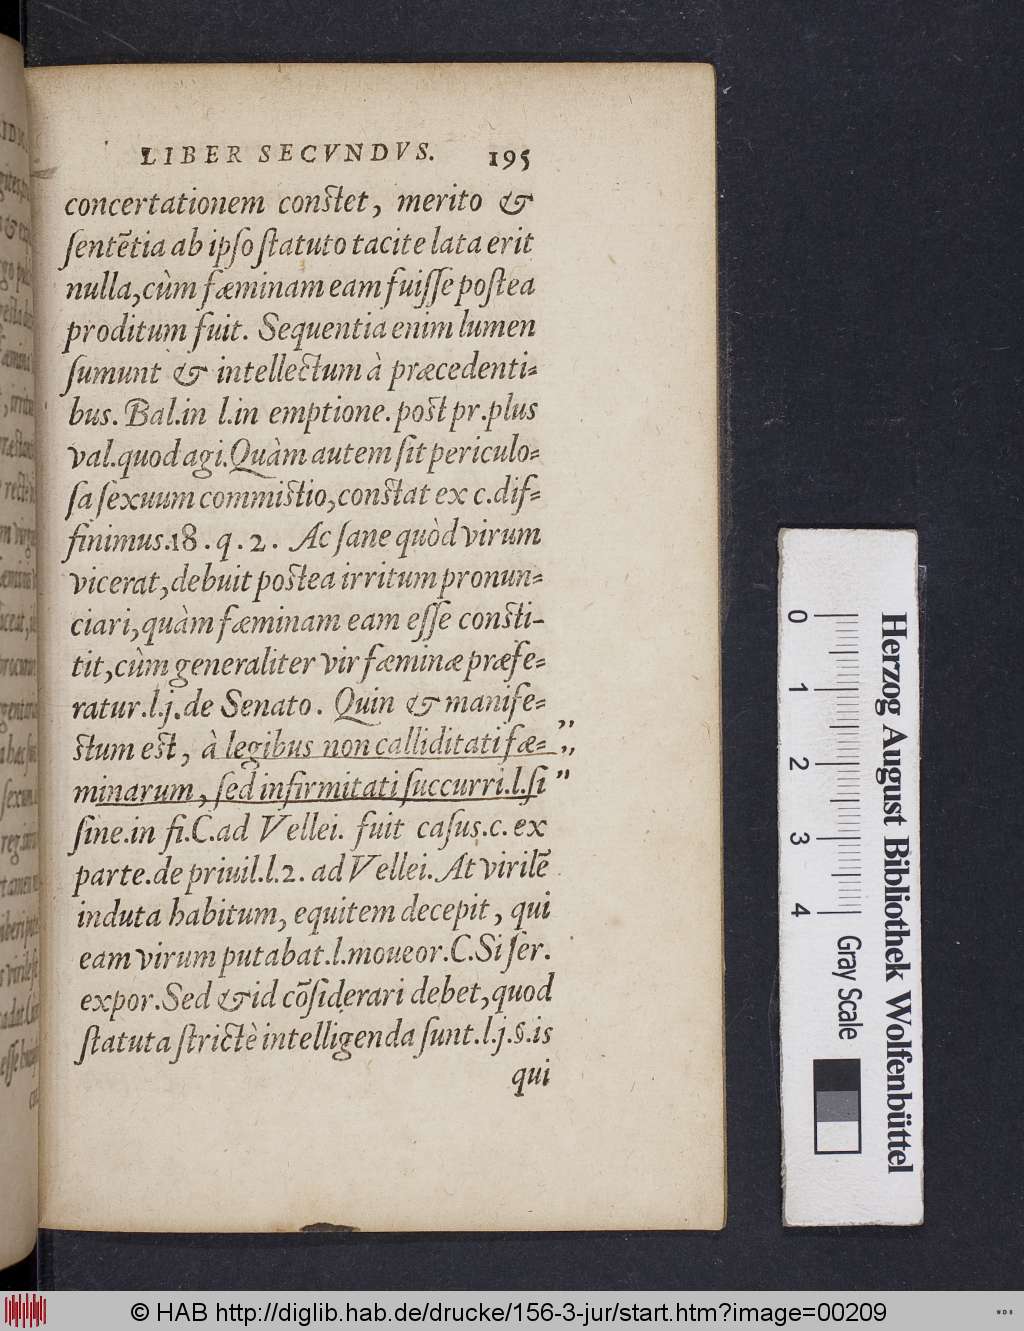 LIBER SECVNDVS. 195
concertationem constet, merito &
sentẽtia ab ipso statuto tacite lata erit
nulla, cùm fæminam eam fuisse postea
proditum fuit. Sequentia enim lumen
sumunt & intellectum à præcedenti-
bus. Bal. in l. in emptione. post pr. plus
val. quod agi. Quàm autem sit periculo-
sa sexuum commistio, constat ex c. dif-
finimus. 18. q. 2. Ac sane quòd virum
vicerat, debuit postea irritum pronun-
ciari, quàm fæminam eam esse consti-
tit, cùm generaliter vir fæminæ præfe-
ratur. l. j. de Senato. Quin & manife-
stum est, à legibus non calliditati fæ- ”,,
minarum, sed infirmitati succurri. l. si ”
sine. in fi. C. ad Vellei. fuit casus. c. ex
parte. de priuil. l. 2. ad Vellei. At virilẽ
induta habitum, equitem decepit, qui
eam virum putabat. l. moueor. C. Si ser.
expor. Sed & id cõsiderari debet, quod
statuta strictè intelligenda sunt. l. j. §. is
qui
Herzog August Bibliothek Wolfenbüttel
0 1 2 3 4
Gray Scale
© HAB http://diglib.hab.de/drucke/156-3-jur/start.htm?image=00209